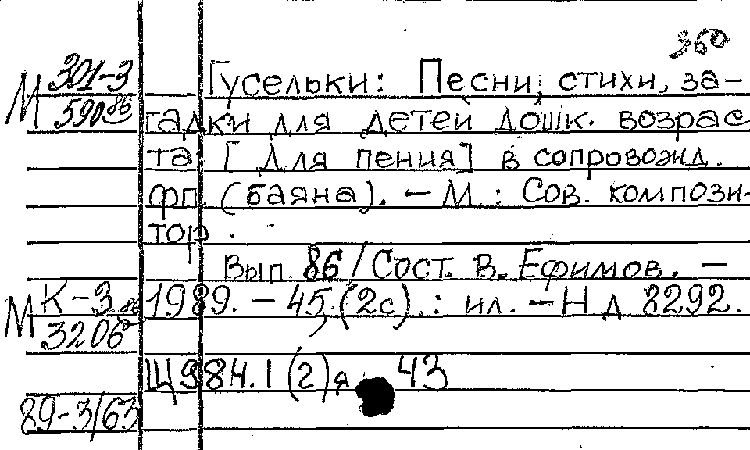 360
М 301-3
590
Гусельки: Песни, стихи, за-
гадки для детей дошк. возрас
та [Для пения] в сопровожд.
фп. (баяна). — М.: Сов. компози-
тор.
Вып. 86 / Сост. В. Ефимов. —
М К-3
3206
1989. — 45, (2с).: ил. — Н д 8292.
Щ984.1(2)я 43
89-3/63